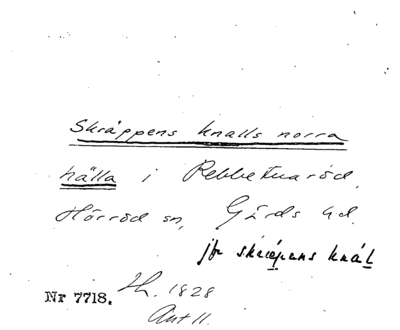 Skräppens knalls norra
hälla i Rebbetuaröd,
Hörröd sn, Gärds hd.
jfr skräpens knál
Nr 7718. Lh. 1828
Ant 11.